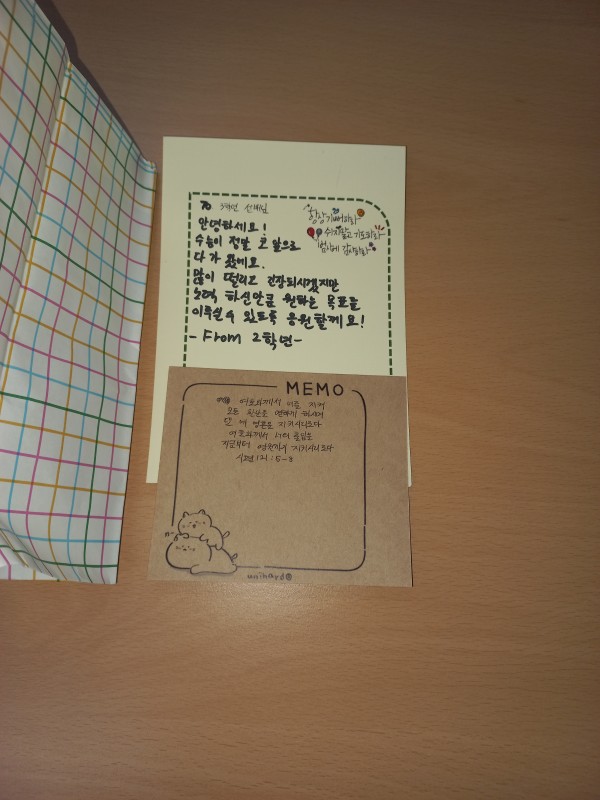 To. 3학년 선배님
항상 기뻐하라
쉬지말고 기도하라
범사에 감사하라
안녕하세요!
수능이 정말 코 앞으로
다가 왔네요.
많이 떨리고 긴장되시겠지만
노력 하신만큼 원하는 목표를
이루실 수 있도록 응원할게요!
- From 2학년 -
MEMO
여호와께서 너를 지켜
모든 환난을 면하게 하시며
또 네 영혼을 지키시리로다
여호와께서 너의 출입을
지금부터 영원까지 지키시리로다
시편 121: